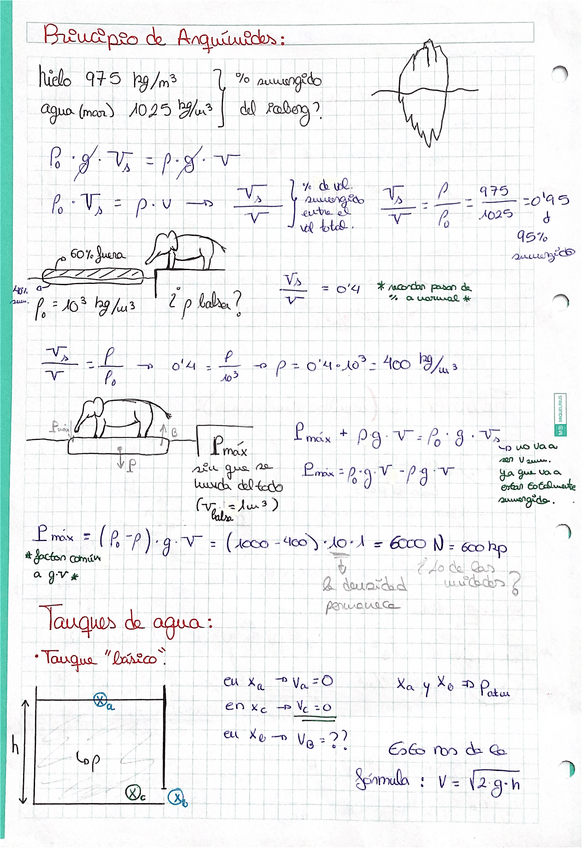 Principio de Arquímides:
hielo 975 kg/m³
agua (mar) 1025 kg/m³
% sumergido
del iceberg?
ρ₀ · g · Vs = ρ · g · V
ρ₀ · Vs = ρ · V → Vs/V
% de vol.
sumergido
entre el
vol total.
Vs/V = ρ/ρ₀ = 975/1025 = 0'95
95%
sumergido
60% fuera
40%
sum.
ρ₀ = 10³ kg/m³
¿ρ balsa?
Vs/V = 0'4
* recordar pasar de
% a normal *
Vs/V = ρ/ρ₀ → 0'4 = ρ/10³ → ρ = 0'4 · 10³ = 400 kg/m³
Pmáx
B
P
Pmáx
sin que se
hunda del todo
(V balsa = 1m³)
Pmáx + ρ g · V = ρ₀ · g · Vs
Pmáx = ρ₀ · g · V - ρ g · V
→ no va a
ser V sum.
ya que va a
estar totalmente
sumergido.
Pmáx = (ρ₀ - ρ) · g · V = (1000 - 400) · 10 · 1 = 6000 N = 600 kp
* factor común
a g · V *
la densidad
permanece
¿Lo de las
unidades?
Tanques de agua:
· Tanque "básico":
xa
h
↳ρ
xc
xb
en xa → Va = 0
en xc → Vc = 0
en xb → VB = ??
xa y xb ⇒ Patm
Esto nos da la
fórmula : V = √2·g·h